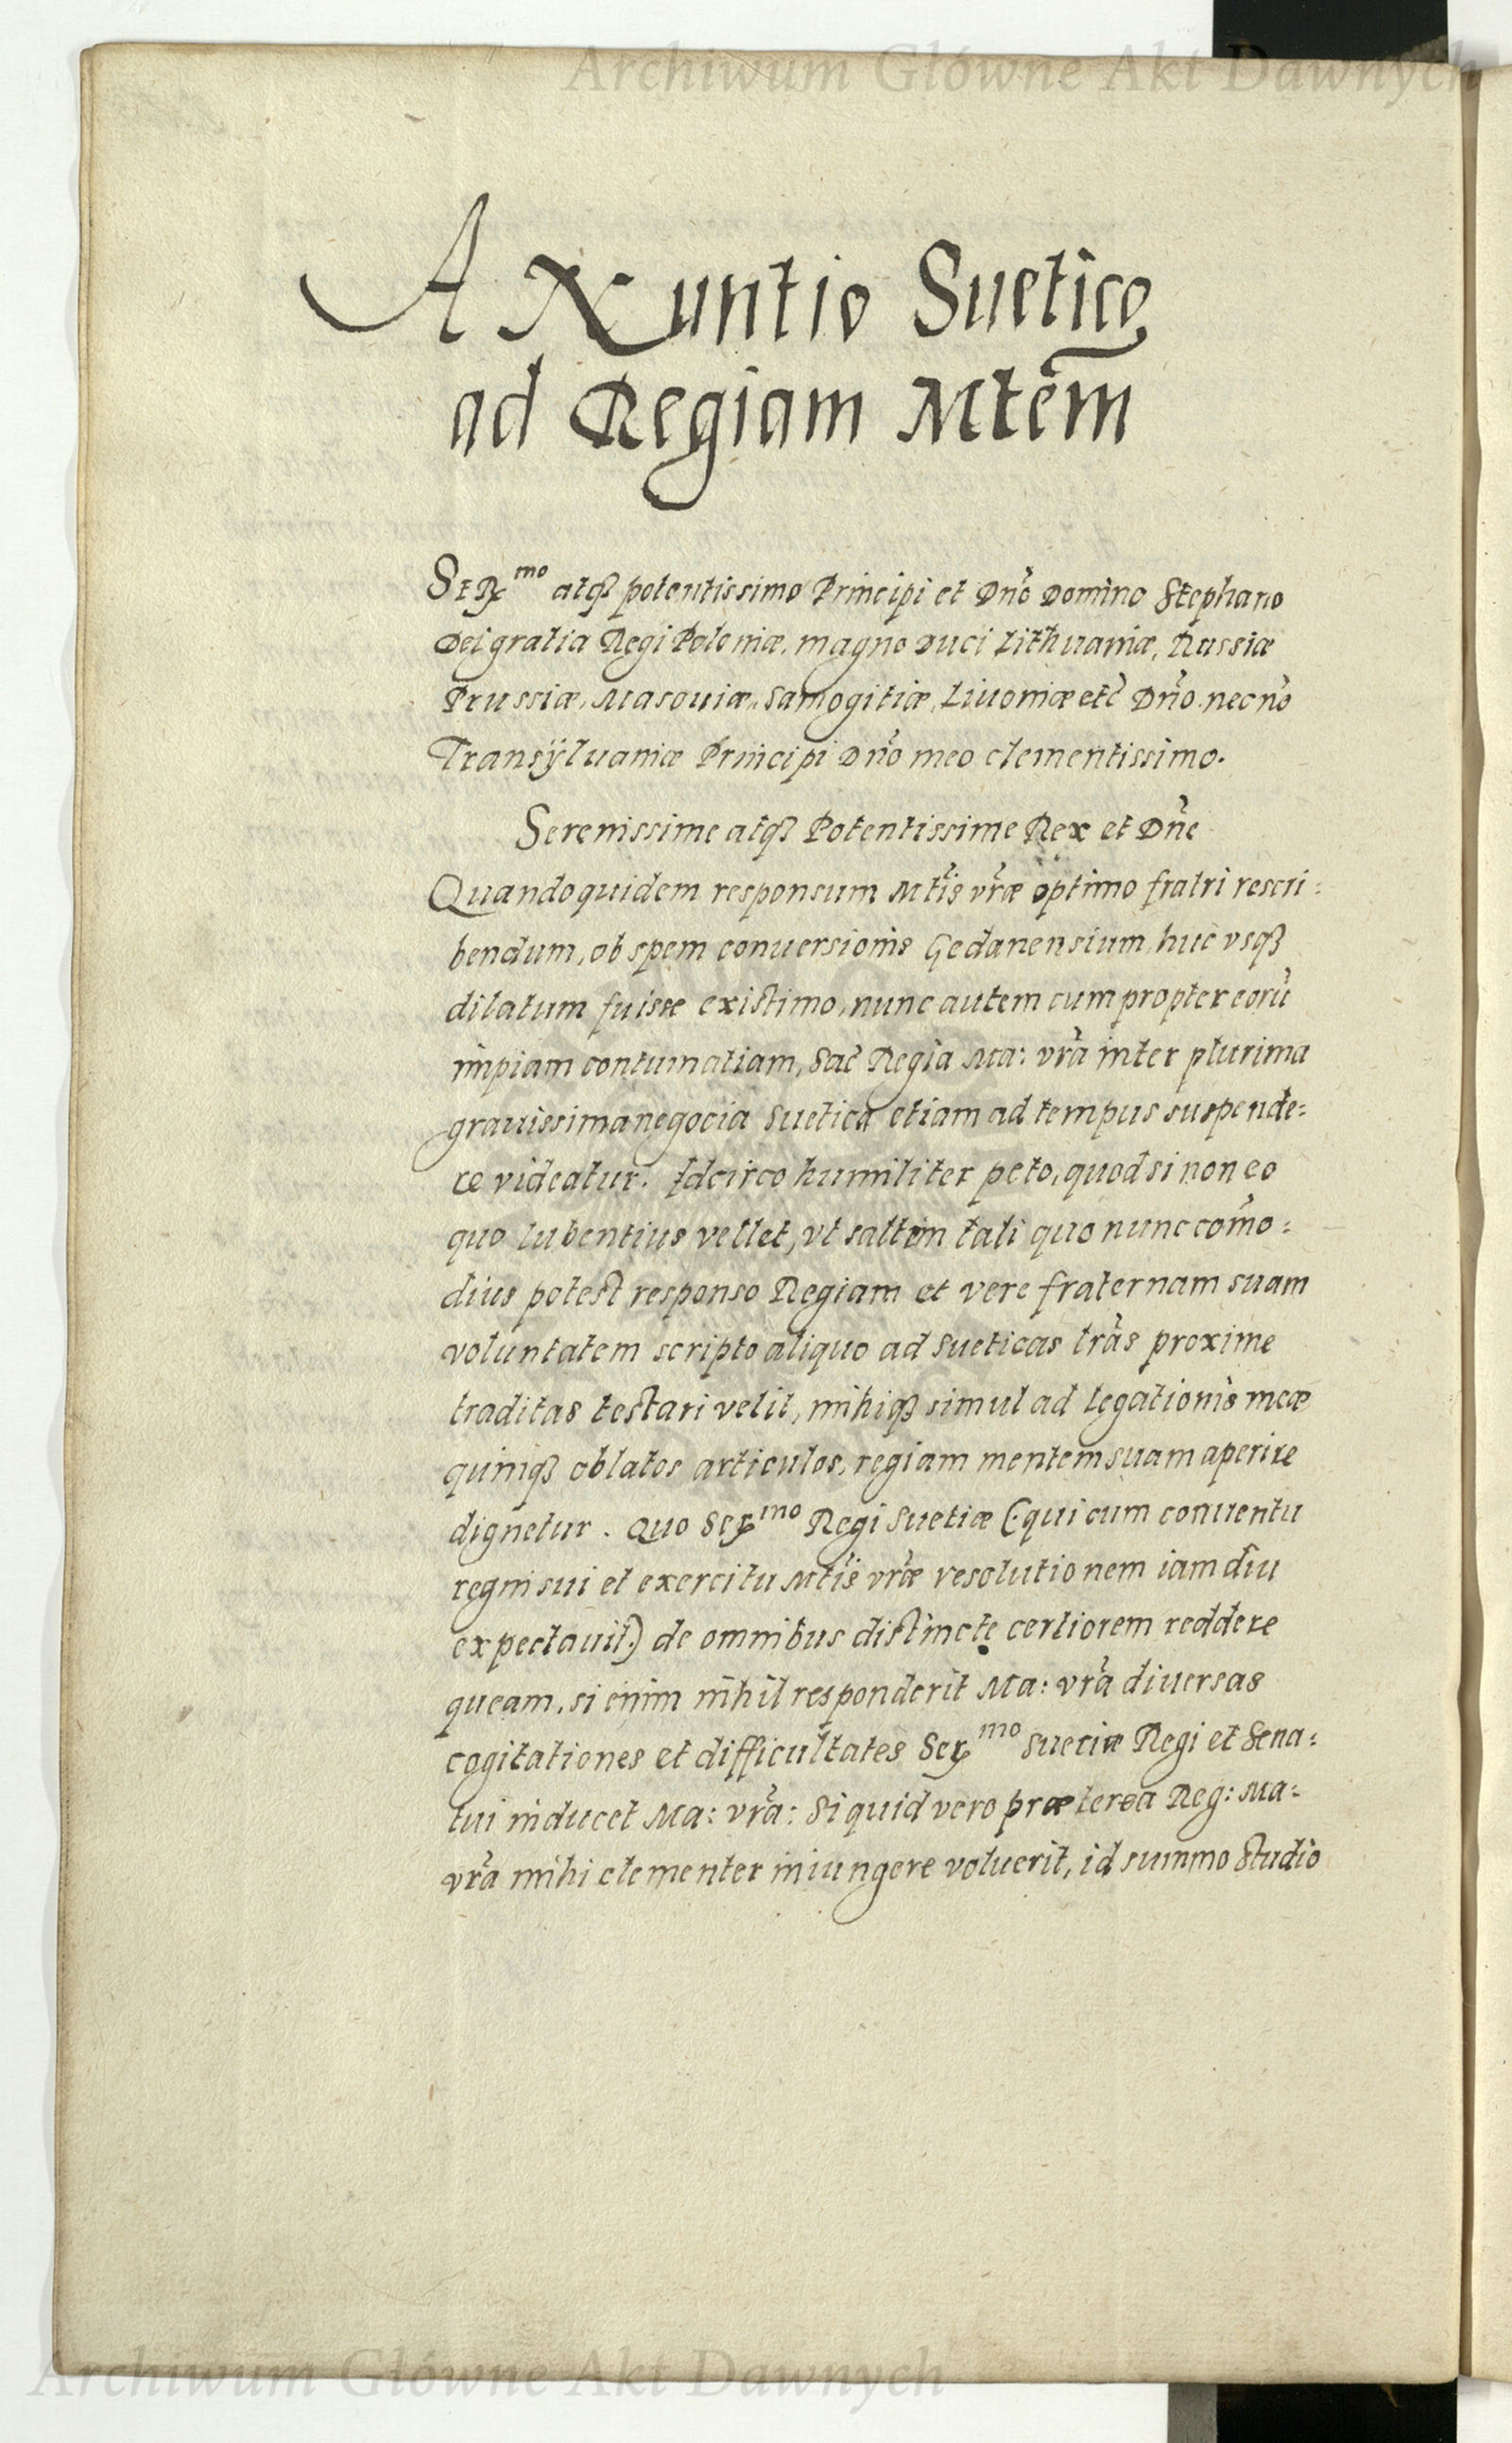 Archiwum Główne Akt Dawnych
A Nuntio Suetico
ad Regiam Mtēm
Serᵐᵒ atqꝫ potentissimo Principi et Dn̄o Domino Stephano
Dei gratia Regi Poloniæ, magno Duci Lithuaniæ, Russiæ
Prussiæ, Masouiæ, Samogitiæ, Liuoniæ etc̄ Dn̄o necnō
Transÿluaniæ Principi Dn̄o meo clementissimo.
Serenissime atqꝫ Potentissime Rex et Dn̄e
Quandoquidem responsum Mtīs vr̄æ optimo fratri rescri:
bendum, ob spem conuersionis Gedanensium, huc vsqꝫ
dilatum fuisse existimo, nunc autem cum propter eorū
impiam contumatiam, Sac̄ Regia Ma: vr̄a inter plurima
grauissima negocia Suetica etiam ad tempus suspende:
re videatur. Idcirco humiliter peto, quod si non eo
quo lubentius vellet, vt saltem tali quo nunc com̄o:
dius potest responso Regiam et vere fraternam suam
voluntatem scripto aliquo ad Sueticas lrās proxime
traditas testari velit, mihiqꝫ simul ad legationis meæ
quinqꝫ oblatos articulos, regiam mentem suam aperire
dignetur. Quo Serᵐᵒ Regi Suetiæ (: qui cum conuentu
regni sui et exercitu Mtīs vr̄æ resolutionem iam diu
expectauit :) de omnibus distincte certiorem reddere
queam, si enim nihil responderit Ma: vr̄a diuersas
cogitationes et difficultates Serᵐᵒ Sueciæ Regi et Sena:
tui inducet Ma: vr̄a: Si quid vero præterea Reg: Ma:
vr̄a mihi clementer iniungere voluerit, id summo studio
Archiwum Główne Akt Dawnych